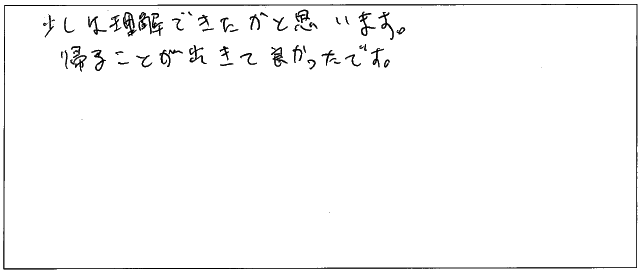 少しは理解できたかと思います。
帰ることが出きて良かったです。